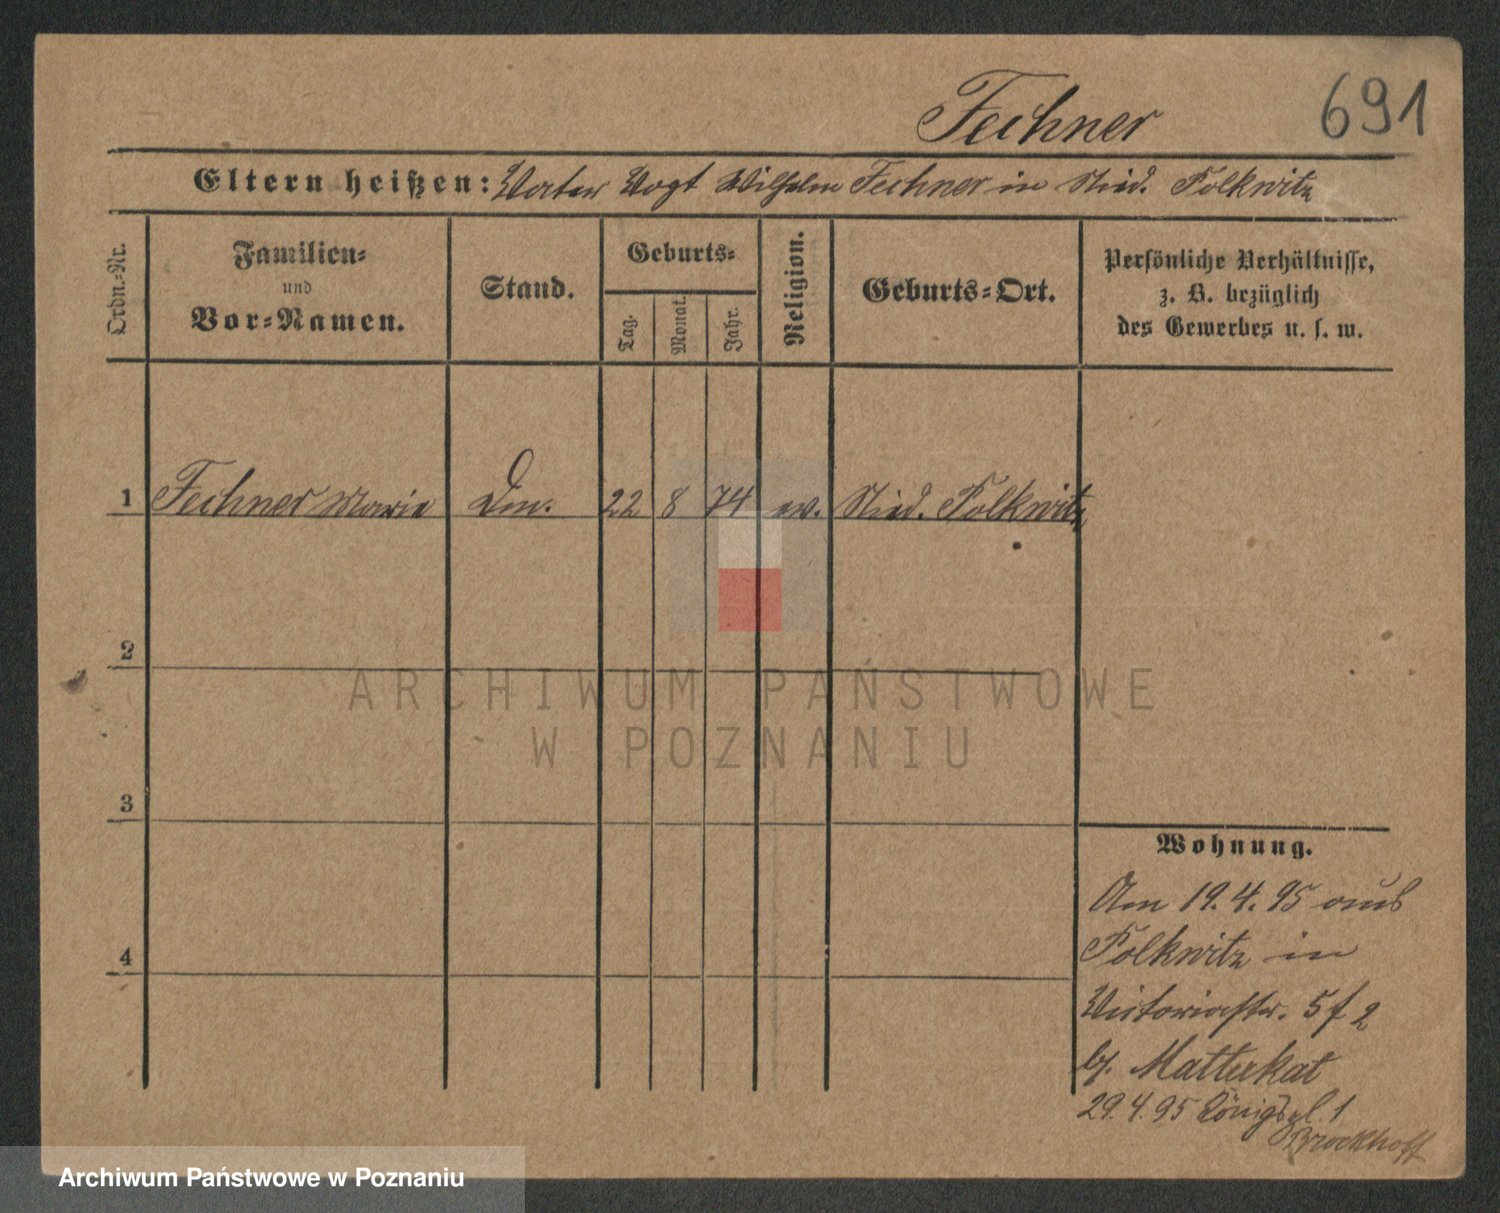 Fechner
691
Eltern heißen: Vater Vogt Wilhelm Fechner in Nied. Polkwitz
Ordn.-Nr.
Familien-
und
Vor-Namen.
Stand.
Geburts-
Tag.
Monat.
Jahr.
Religion.
Geburts-Ort.
Persönliche Verhältnisse,
z. B. bezüglich
des Gewerbes u. s. w.
1 Fechner Marie 22 8 74 ev. Nied. Polkwitz
2
3
4
Wohnung.
Am 19. 4. 95 aus
Polkwitz in
Victoriastr. 5 f 2
b/. Matterkat
29. 4. 95 Königspl. 1
Brockhoff
ARCHIWUM PAŃSTWOWE
W POZNANIU
Archiwum Państwowe w Poznaniu